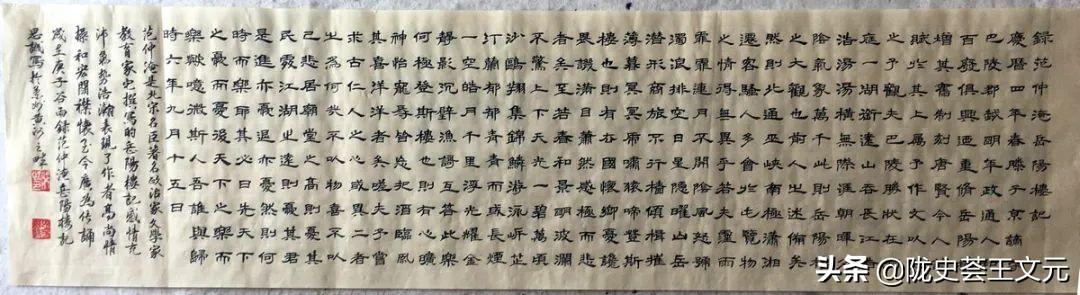 録范仲淹岳陽樓記
慶曆四年春滕子京謫守
巴陵郡越明年政通人和
百廢俱興迺重修岳陽樓
增其舊制刻唐賢今人詩
賦於其上屬予作文以記
之予觀夫巴陵勝狀在洞
庭一湖銜遠山吞長江浩
浩湯湯橫無際涯朝暉夕
陰氣象萬千此則岳陽樓
之大觀也前人之述備矣
然則北通巫峽南極瀟湘
遷客騷人多會於此覽物
之情得無異乎若夫淫雨
霏霏連月不開陰風怒號
濁浪排空日星隱曜山岳
潛形商旅不行檣傾楫摧
薄暮冥冥虎嘯猿啼登斯
樓也則有去國懷鄉憂讒
畏譏滿目蕭然感極而悲
者矣至若春和景明波瀾
不驚上下天光一碧萬頃
沙鷗翔集錦鱗游泳岸芷
汀蘭郁郁青青而或長煙
一空皓月千里浮光躍金
靜影沉璧漁歌互答此樂
何極登斯樓也則有心曠
神怡寵辱偕忘把酒臨風
其喜洋洋者矣嗟夫予嘗
求古仁人之心或異二者
之為何哉不以物喜不以
己悲居廟堂之高則憂其
民處江湖之遠則憂其君
是進亦憂退亦憂然則何
時而樂耶其必曰先天下
之憂而憂後天下之樂而
樂歟噫微斯人吾誰與歸
時六年九月十五日
范仲淹是北宋名臣著名政治家文學家
教育家他撰寫的岳陽樓記感情充
沛氣勢浩瀚表現了作者高尚情
操和宏闊襟懷至今廣為传誦
歲在庚子谷雨録范仲淹岳陽樓記
思誠寫於蘭州黄河之畔
头条 @陇史荟王文元